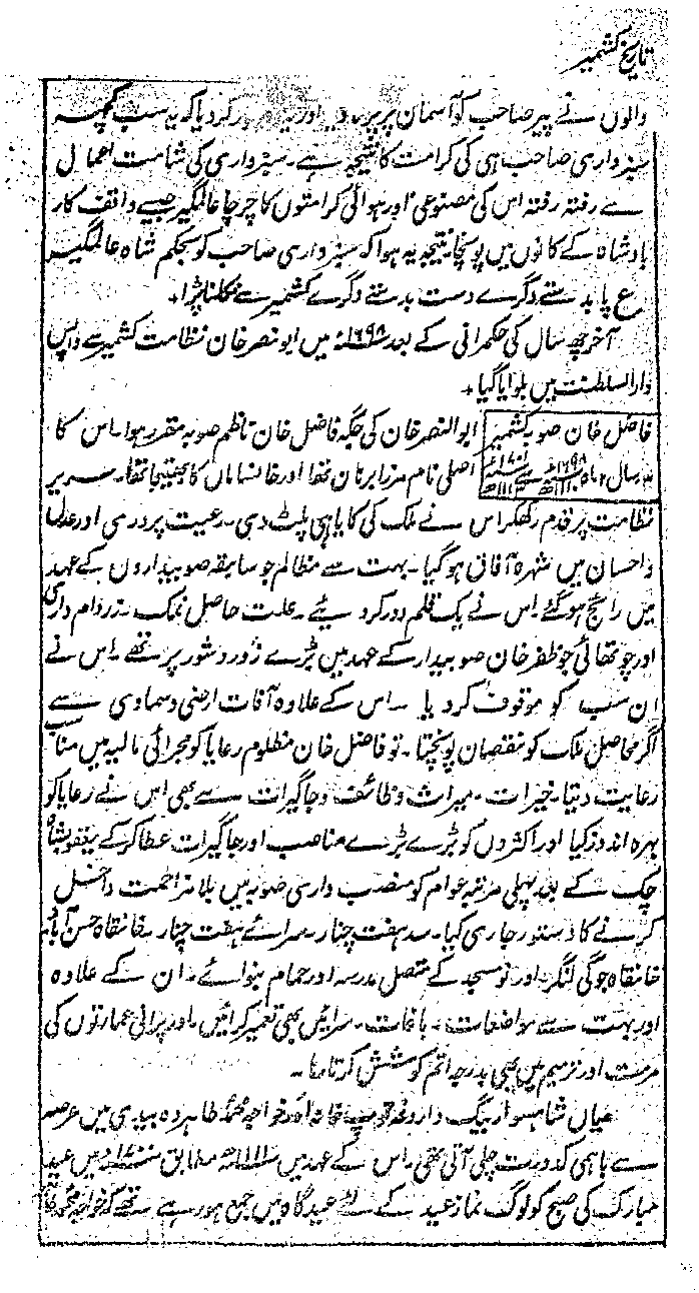 تاریخ کشمیر
والوں نے پیر صاحب کو آسمان پر اور کر دیا کہ یہ سب کچھ
سبزواری صاحب ہی کی کرامت کا نتیجہ ہے۔ سبزواری کی شامت اعمال
سے رفتہ رفتہ اس کی مصنوعی اور ہوائی کرامتوں کا چرچا عالمگیر جیسے واقف کار
بادشاہ کے کانوں میں پہونچا۔ نتیجہ یہ ہوا کہ سبزواری صاحب کو بحکم شاہ عالمگیر
ع پا بدستے دگرے دست بدستے دگرے کشمیر سے نکلنا پڑا۔
آخر چھ سال کی حکمرانی کے بعد ۱۶۹۸ء میں ابونصر خان نظامت کشمیر سے واپس
دارالسلطنت میں بلوایا گیا۔
فاضل خان صوبہ کشمیر ابوالنصر خان کی جگہ فاضل خان ناظم صوبہ مقرر ہوا۔ اس کا
سال ماہ ۱۶۹۸ء سے ۱۷۰۱ء اصلی نام مرزا برہان تھا اور خانساماں کا بھتیجا تھا۔ سریر
نظامت پر قدم رکھکر اس نے ملک کی کایا ہی پلٹ دی۔ رعیت پروری اور عدل
واحسان میں شہرہ آفاق ہو گیا۔ بہت سے مظالم جو سابقہ صوبیداروں کے عہد
میں رائج ہو گئے۔ اس نے یک قلم دور کر دیئے۔ علت حاصل نمک۔ زر دام داری
اور چوتھائی جو ظفر خان صوبیدار کے عہد میں بڑے زور و شور پر تھے۔ اس نے
ان سب کو موقوف کر دیا۔ اس کے علاوہ آفات ارضی و سماوی سے
اگر محاصل ملک کو نقصان پہونچتا۔ تو فاضل خان مظلوم رعایا کو مجرائی مالیہ میں مناسب
رعایت دیتا۔ خیرات۔ میراث وظائف و جاگیرات سے بھی اس نے رعایا کو
بہرہ اندوز کیا اور اکثروں کو بڑے بڑے مناصب اور جاگیرات عطا کر کے یعقوب شاہ
چک کے بعد پہلی مرتبہ عوام کو منصب داری صوبہ میں بلا مزاحمت داخل
کرنے کا دستور جاری کیا۔ سد ہفت چنار۔ سرائے ہفت چنار۔ خانقاہ حسن آباد
خانقاہ جوگی لنگر اور نو مسجد کے متصل مدرسہ اور حمام بنوائے۔ ان کے علاوہ
اور بہت سے مواضعات۔ باغات۔ سرائیں بھی تعمیر کرائیں۔ اور پرانی عمارتوں کی
مرمت اور ترمیم میں بھی بدرجہ اتم کوشش کرتا رہا۔
میاں شاہسوار بیگ داروغہ توپ خانہ اور خواجہ محمد طاہر دہ بیدی میں عرصہ
سے باہمی کدورت چلی آتی تھی۔ اس کے عہد میں ۱۱۱۱ھ مطابق ۱۷۰۰ء میں عید
مبارک کی صبح کو لوگ نماز عید کے لئے عیدگاہ میں جمع ہو رہے تھے کہ خواجہ محمد